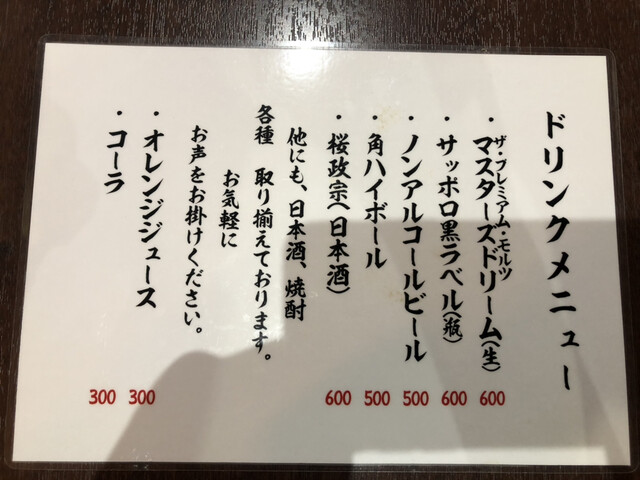 ドリンクメニュー
ザ・プレミアム・モルツ
・マスターズドリーム(生) 600
・サッポロ黒ラベル(瓶) 600
・ノンアルコールビール 500
・角ハイボール 500
・桜政宗(日本酒) 600
他にも、日本酒、焼酎
各種 取り揃えております。
お気軽に
お声をお掛けください。
・オレンジジュース 300
・コーラ 300